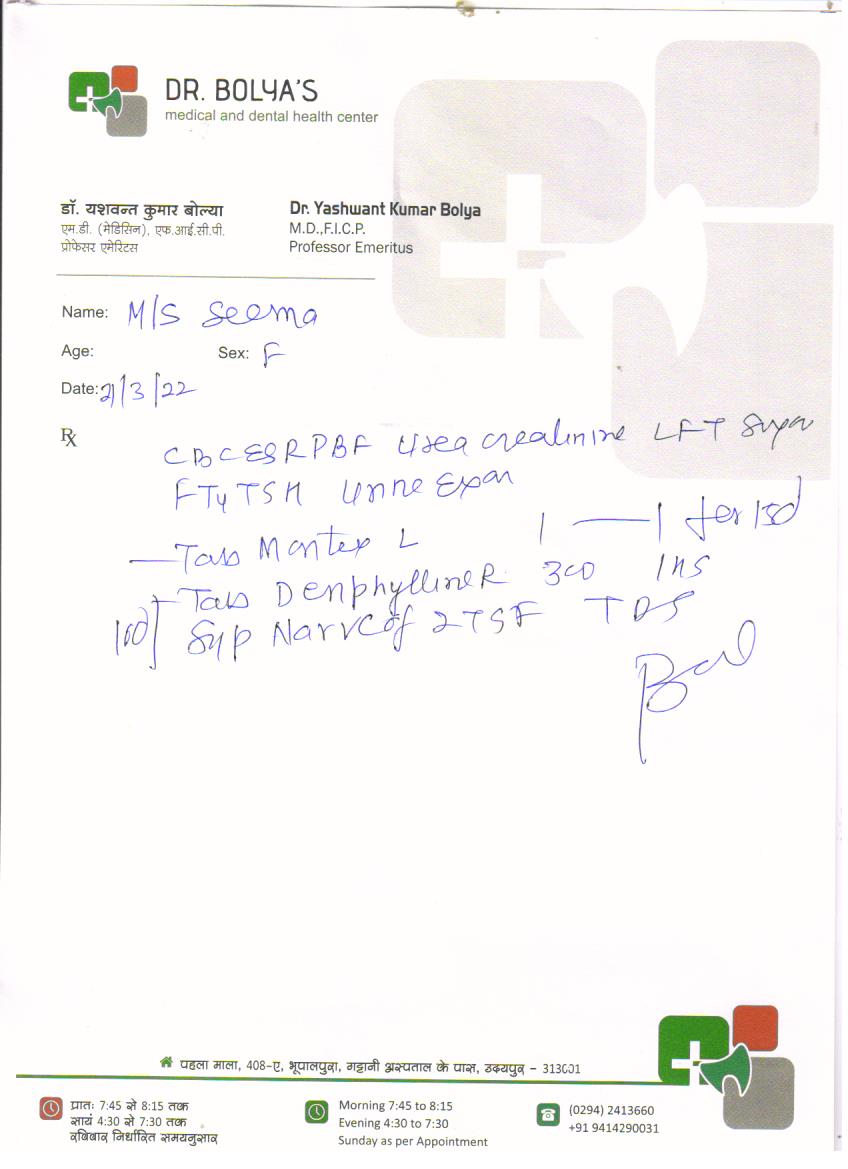 DR. BOLYA'S
medical and dental health center
डॉ. यशवन्त कुमार बोल्या
एम.डी. (मेडिसिन), एफ.आई.सी.पी.
प्रोफेसर एमेरिटस
Dr. Yashwant Kumar Bolya
M.D.,F.I.C.P.
Professor Emeritus
Name: M/S Seema
Age: Sex: F
Date: 2/3/22
Rx
CBC ESR PBF Urea creatinine LFT Sugar
FT4 TSH Urine Exam
Tab Montex L 1 — 1 for 15d
Tab Denphylline R 300 1HS
100 Syp Narvcof 2TSF TDS
पहला माला, 408-ए, भूपालपुरा, गट्टानी अस्पताल के पास, उदयपुर – 313001
प्रातः 7:45 से 8:15 तक
सायं 4:30 से 7:30 तक
रविवार निर्धारित समयनुसार
Morning 7:45 to 8:15
Evening 4:30 to 7:30
Sunday as per Appointment
(0294) 2413660
+91 9414290031